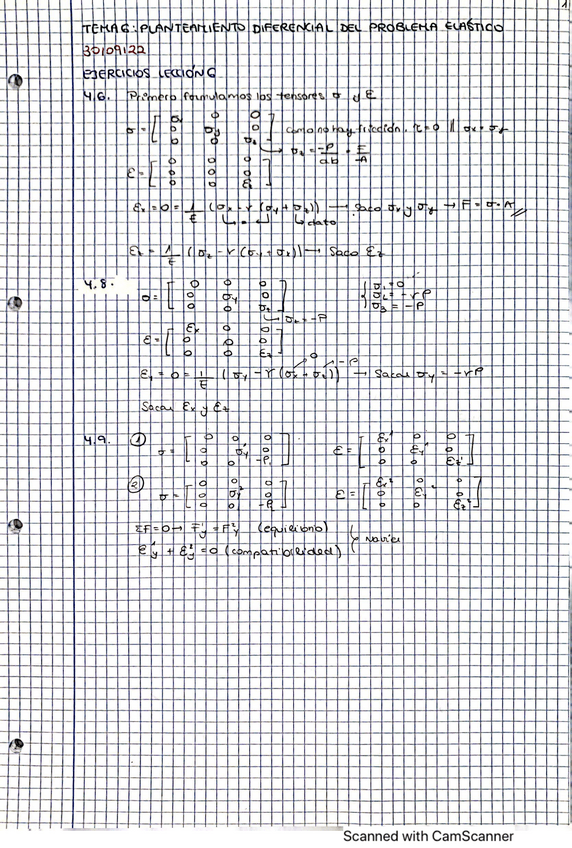 1
TEMA 6: PLANTEAMIENTO DIFERENCIAL DEL PROBLEMA ELÁSTICO
30/09/22
EJERCICIOS LECCIÓN 6
4.6. Primero formulamos los tensores σ y ε
σ = [σx 0 0; 0 σy 0; 0 0 σz] como no hay fricción, τ=0 || σx = σy
σz = -P/ab = F/-A
ε = [0 0 0; 0 0 0; 0 0 εz]
εx = 0 = 1/E (σx - r (σy + σz)) → Saco σx y σy → F = σ·A
dato
εz = 1/E (σz - r (σy + σx)) → Saco εz
4.8. σ = [0 0 0; 0 σy 0; 0 0 σz] { σ1 = 0 σ2 = -rP σ3 = -P
σz = -P
ε = [εx 0 0; 0 0 0; 0 0 εz]
0 -P
εy = 0 = 1/E (σy - r (σx + σz)) → Sacar σy = -rP
Sacar εx y εz
4.9. ① σ = [0 0 0; 0 σy¹ 0; 0 0 -P] ε = [εx¹ 0 0; 0 εy¹ 0; 0 0 εz¹]
② σ = [0 0 0; 0 σy² 0; 0 0 -P] ε = [εx² 0 0; 0 εy² 0; 0 0 εz²]
ΣF = 0 → Fy¹ = Fy² (equilibrio)
εy¹ + εy² = 0 (compatibilidad) } Navier
Scanned with CamScanner